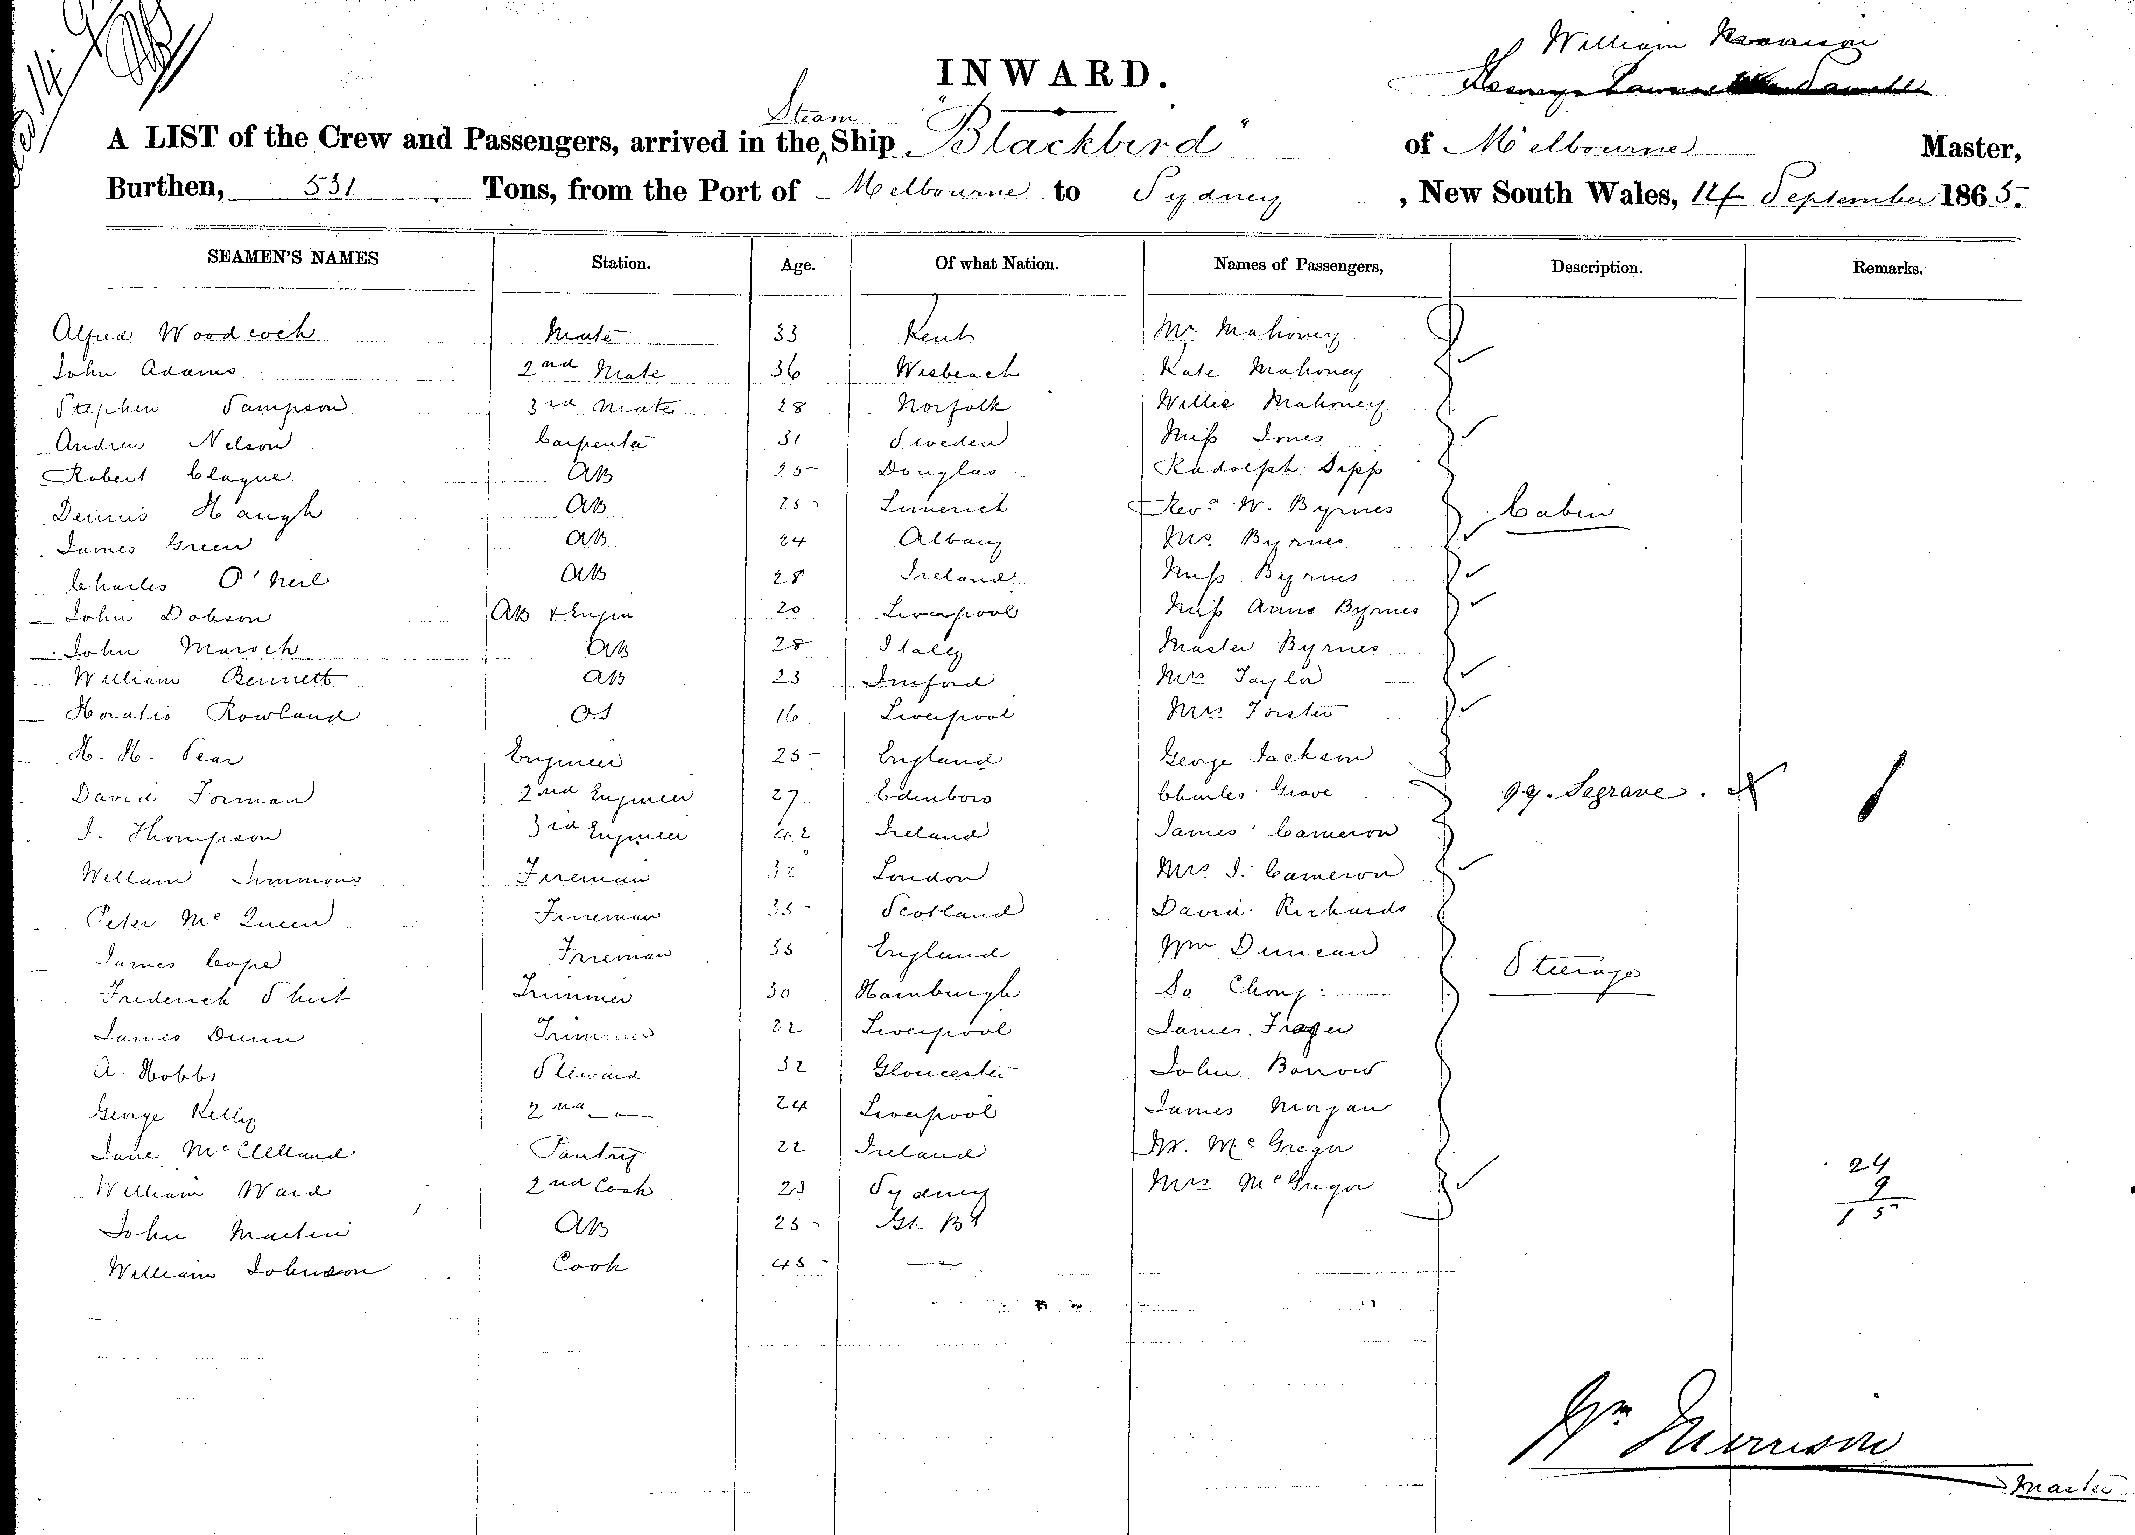 William Morrison
INWARD.
Steam
A LIST of the Crew and Passengers, arrived in the Ship "Blackbird" of Melbourne Master,
Burthen, 531 Tons, from the Port of Melbourne to Sydney, New South Wales, 14 September 1865.
SEAMEN'S NAMES Station. Age. Of what Nation. Names of Passengers, Description. Remarks.
Alfred Woodcock Mate 33 Kent Mr Mahoney
John Adams 2nd Mate 36 Wisbeach Kate Mahoney
Stephen Sampson 3rd Mate 28 Norfolk Willie Mahoney
Andrew Nelson Carpenter 31 Sweden Miss Jones
Robert Clague AB 25 Douglas Rudolph Dipp
Dennis Haugh AB 25 Limerick Revd W. Byrnes Cabin
James Green AB 24 Albany Mrs Byrnes
Charles O'Neil AB 28 Ireland Miss Byrnes
John Dobson AB & Engin 20 Liverpool Miss Anne Byrnes
John Maroch AB 28 Italy Master Byrnes
William Bennett AB 23 Mrs Taylor
Horatio Rowland OS 16 Liverpool Mrs Forster
H. H. Pear Engineer 25 England George Jackson
David Forman 2nd Engineer 27 Edenboro Charles Grove gg. Segrave. X
J. Thompson 3rd Engineer 42 Ireland James Cameron
William Simmons Fireman 32 London Mrs J. Cameron
Peter McQueen Fireman 35 Scotland David Richards
James Cope Fireman 35 England Wm Duncan Steerage
Frederick Shut Trimmer 30 Hamburgh So Chong
James Dunn Trimmer 22 Liverpool James Frazer
A. Hobbs Steward 32 Gloucester John Borrow
George Kelly 2nd — 24 Liverpool James Morgan
Jane McClelland Pantry 22 Ireland Mr. McGregor
24
William Ward 2nd Cook 23 Sydney Mrs McGregor
9
15
John Martin AB 25 Gt Bt
William Johnson Cook 45 —
Wm Morrison
Master